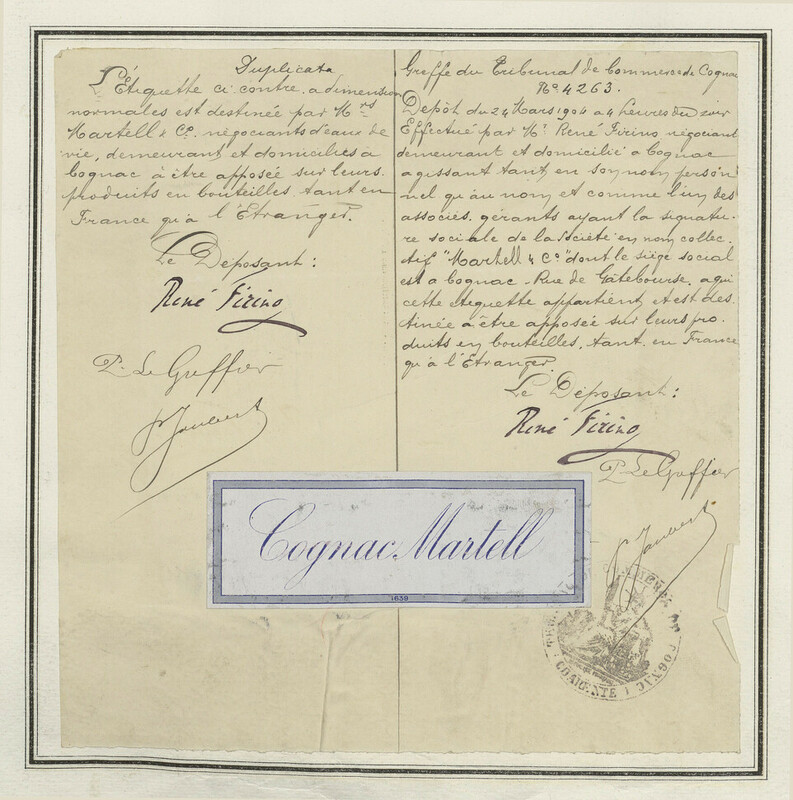 Duplicata
L'Étiquette ci contre, a dimension
normales est destinée par Mrs
Martell & Co. négociants d'eaux de
vie, demeurant et domiciliés a
Cognac à être apposée sur leurs
produits en bouteilles, tant en
France qu'à l'Étranger.
Le Déposant:
René Firino
P. Le Greffier
P. Jaubert
Greffe du Tribunal de Commerce de Cognac
No. 4263.
Depôt du 24 Mars 1904 a 4 heures du soir
Effectué par Mr. René Firino négociant
demeurant et domicilié a Cognac
agissant tant en son nom person
nel qu'au nom et comme l'un des
associés, gérants ayant la signatu-
re sociale de la société en nom collec-
tif "Martell & Co." dont le siège social
est a Cognac. Rue de Gâtebourse, a qui
cette etiquette appartient et est des
tinée a être apposée sur leurs pro
duits en bouteilles, tant en France
qu'à l'Étranger.
Le Déposant:
René Firino
P. Le Greffier
Jaubert
Cognac Martell
1639